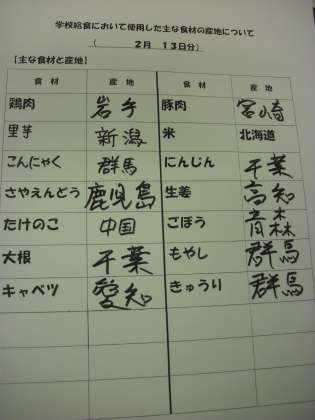 学校給食において使用した主な食材の産地について
（ 2月 13日分）
【主な食材と産地】
食材 産地 食材 産地
鶏肉 岩手 豚肉 宮崎
里芋 新潟 米 北海道
こんにゃく 群馬 にんじん 千葉
さやえんどう 鹿児島 生姜 高知
たけのこ 中国 ごぼう 青森
大根 千葉 もやし 群馬
キャベツ 愛知 きゅうり 群馬